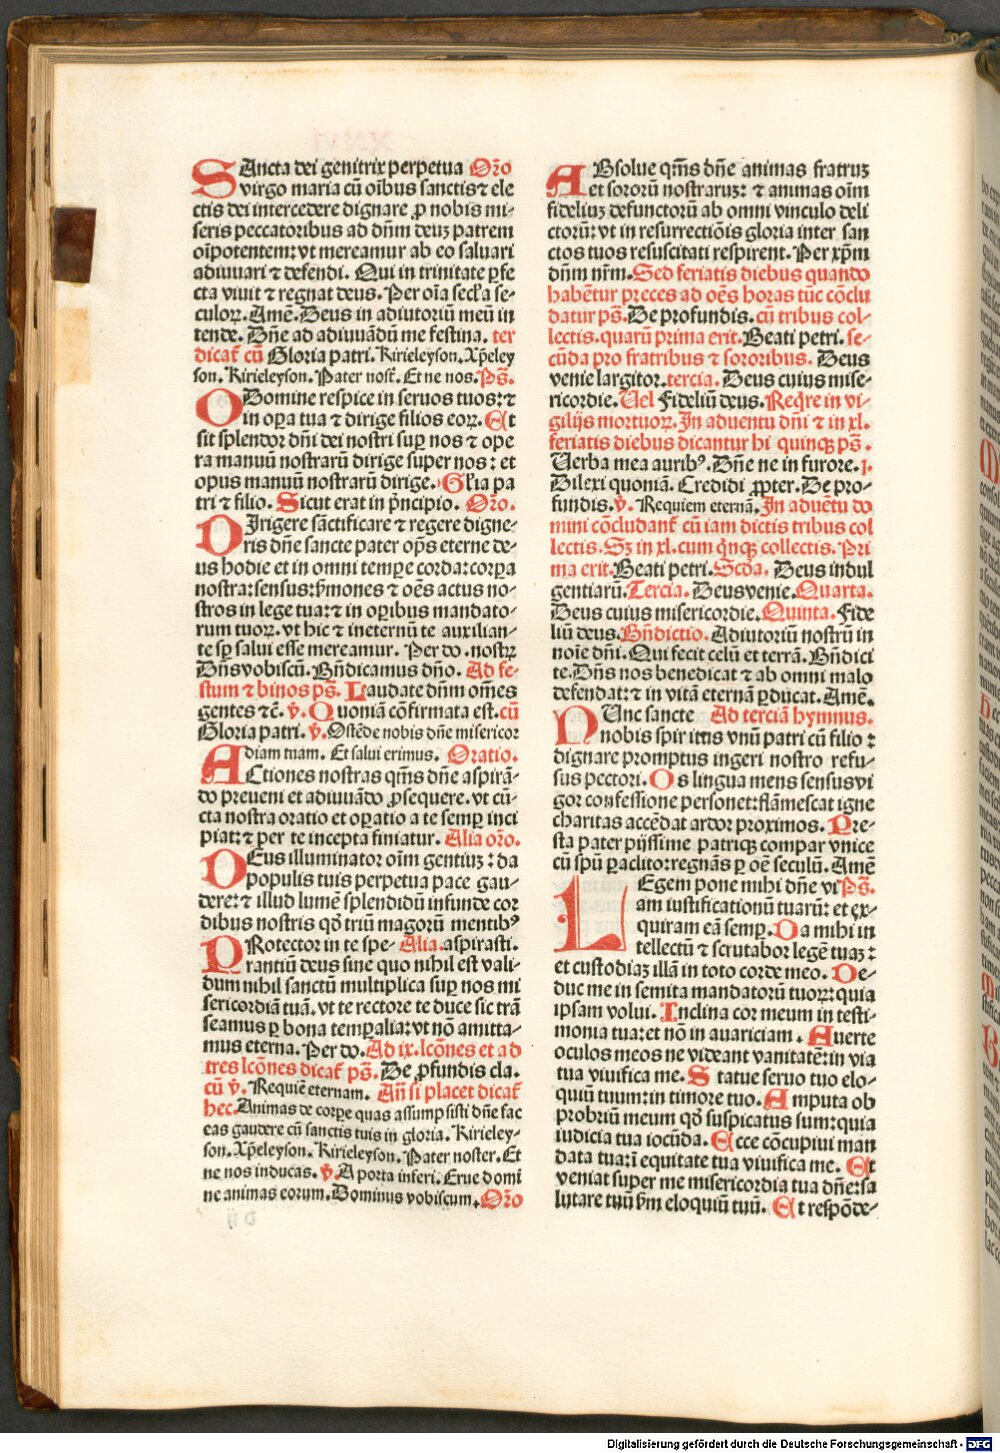 SAncta dei genitrix perpetua Or̄o
virgo maria cū oībus sanctis ⁊ ele
ctis dei intercedere dignare ꝓ nobis mi-
seris peccatoribus ad dn̄m deuꝫ patrem
oīpotentem: vt mereamur ab eo saluari
adiuuari ⁊ defendi. Qui in trinitate ꝑfe
cta viuit ⁊ regnat deus. Per oīa secl̄a se-
culoꝝ. Amē. Deus in adiutoriū meū in
tende. Dn̄e ad adiuuādū me festina. ter
dicat̄ cū Gloria patri. Kirieleyson. Xp̄eley
son. Kirieleyson. Pater nost̄. Et ne nos. Ps̄.
DOmine respice in seruos tuos: ⁊
in oꝑa tua ⁊ dirige filios eoꝝ. Et
sit splendor dn̄i dei nostri suꝑ nos ⁊ ope
ra manuū nostrarū dirige super nos: et
opus manuū nostrarū dirige. Gl̄ia pa
tri ⁊ filio. Sicut erat in pͥncipio. Oro.
DIrigere sāctificare ⁊ regere digne-
ris dn̄e sancte pater op̄s eterne de-
us hodie et in omni tempe corda: corꝑa
nostra: sensus: ẜmones ⁊ oēs actus no-
stros in lege tua: ⁊ in oꝑibus mandato-
rum tuoꝝ. vt hic ⁊ ineternū te auxilian-
te sꝑ salui esse mereamur. Per do. nostꝝ
Dn̄s vobiscū. Bn̄dicamus dn̄o. Ad fe-
stum ⁊ binos ps̄. Laudate dn̄m om̄es
gentes ⁊c̄. ꝟ. Quoniā cōfirmata est. cū
Gloria patri. ꝟ. Ostēde nobis dn̄e misericor
diam tuam. Et salui erimus. Oratio.
ACtiones nostras qm̄s dn̄e aspirā-
do preueni et adiuuādo ꝓsequere. vt cū-
cta nostra oratio et oꝑatio a te semꝑ inci
piat: ⁊ per te incepta finiatur. Alia oro.
DEus illuminator oīm gentiuꝫ: da
populis tuis perpetua pace gau-
dere: ⁊ illud lumē splendidū infunde cor
dibus nostris qd̄ triū magorū mentibꝰ
PRotector in te spe- Alia. aspirasti.
rantiū deus sine quo nihil est vali-
dum nihil sanctū multiplica suꝑ nos mi
sericordiā tuā. vt te rectore te duce sic trā
seamus ꝑ bona temꝑalia: vt nō amitta-
mus eterna. Per do. Ad ix. lcōnes et ad
tres lcōnes dicat̄ ps̄. De ꝓfundis cla.
cū ꝟ. Requiē eternam. An̄ si placet dicat̄
hec. Animas de corꝑe quas assumpsisti dn̄e fac
eas gaudere cū sanctis tuis in gloria. Kirieley-
son. Xp̄eleyson. Kirieleyson. Pater noster. Et
ne nos inducas. ꝟ. A porta inferi. Erue domī
ne animas eorum. Dominus vobiscum. Oro
ABsolue qm̄s dn̄e animas fratruꝫ
et sororū nostraruꝫ: ⁊ animas oīm
fideliuꝫ defunctorū ab omni vinculo deli
ctorū: vt in resurrectiōis gloria inter san
ctos tuos resuscitati respirent. Per xp̄m
dn̄m nr̄m. Sed feriatis diebus quando
habētur preces ad oēs horas tūc cōclu
datur ps̄. De profundis. cū tribus col-
lectis. quarū prima erit. Beati petri. se-
cūda pro fratribus ⁊ sororibus. Deus
venie largitor. tercia. Deus cuius mise-
ricordie. Uel Fideliū deus. Req̄re in vi-
gilijs mortuoꝝ. In aduentu dn̄i ⁊ in xl.
feriatis diebus dicantur hi quinqꝫ ps̄.
Uerba mea auribꝰ. Dn̄e ne in furore. j.
Dilexi quoniā. Credidi ꝓpter. De pro-
fundis. ꝟ. Requiem eternā. In aduētu do
mini cōcludant̄ cū iam dictis tribus col
lectis. Sꝫ in xl. cum qͥnqꝫ collectis. Pri
ma erit. Beati petri. Scda. Deus indul
gentiarū. Tercia. Deus venie. Quarta.
Deus cuius misericordie. Quinta. Fide
liū deus. Bn̄dictio. Adiutoriū nostrū in
noīe dn̄i. Qui fecit celū et terrā. Bn̄dici
te. Dn̄s nos benedicat ⁊ ab omni malo
defendat: ⁊ in vitā eternā ꝑducat. Amē.
NUnc sancte Ad terciā hymnus.
nobis spiritus vnū patri cū filio:
dignare promptus ingeri nostro refu-
sus pectori. Os lingua mens sensus vi
gor confessione personet: flāmescat igne
charitas accēdat ardor proximos. Pre-
sta pater pijssime patriqꝫ compar vnice
cū spū ꝑaclito: regnās ꝑ oē seculū. Amē
LEgem pone mihi dn̄e vi Ps̄.
am iustificationū tuarū: et ex-
quiram eā semꝑ. Da mihi in
tellectū ⁊ scrutabor legē tuaꝫ:
et custodiaꝫ illā in toto corde meo. De-
duc me in semita mandatorū tuoꝝ: quia
ipsam volui. Inclina cor meum in testi-
monia tua: et nō in auariciam. Auerte
oculos meos ne videant vanitatē: in via
tua viuifica me. Statue seruo tuo elo-
quiū tuum: in timore tuo. Amputa ob
probriū meum qd̄ suspicatus sum: quia
iudicia tua iocūda. Ecce cōcupiui man
data tua: ī equitate tua viuifica me. Et
veniat super me misericordia tua dn̄e: sa
lutare tuū ẜm eloquiū tuū. Et respōde-
Digitalisierung gefördert durch die Deutsche Forschungsgemeinschaft - DFG